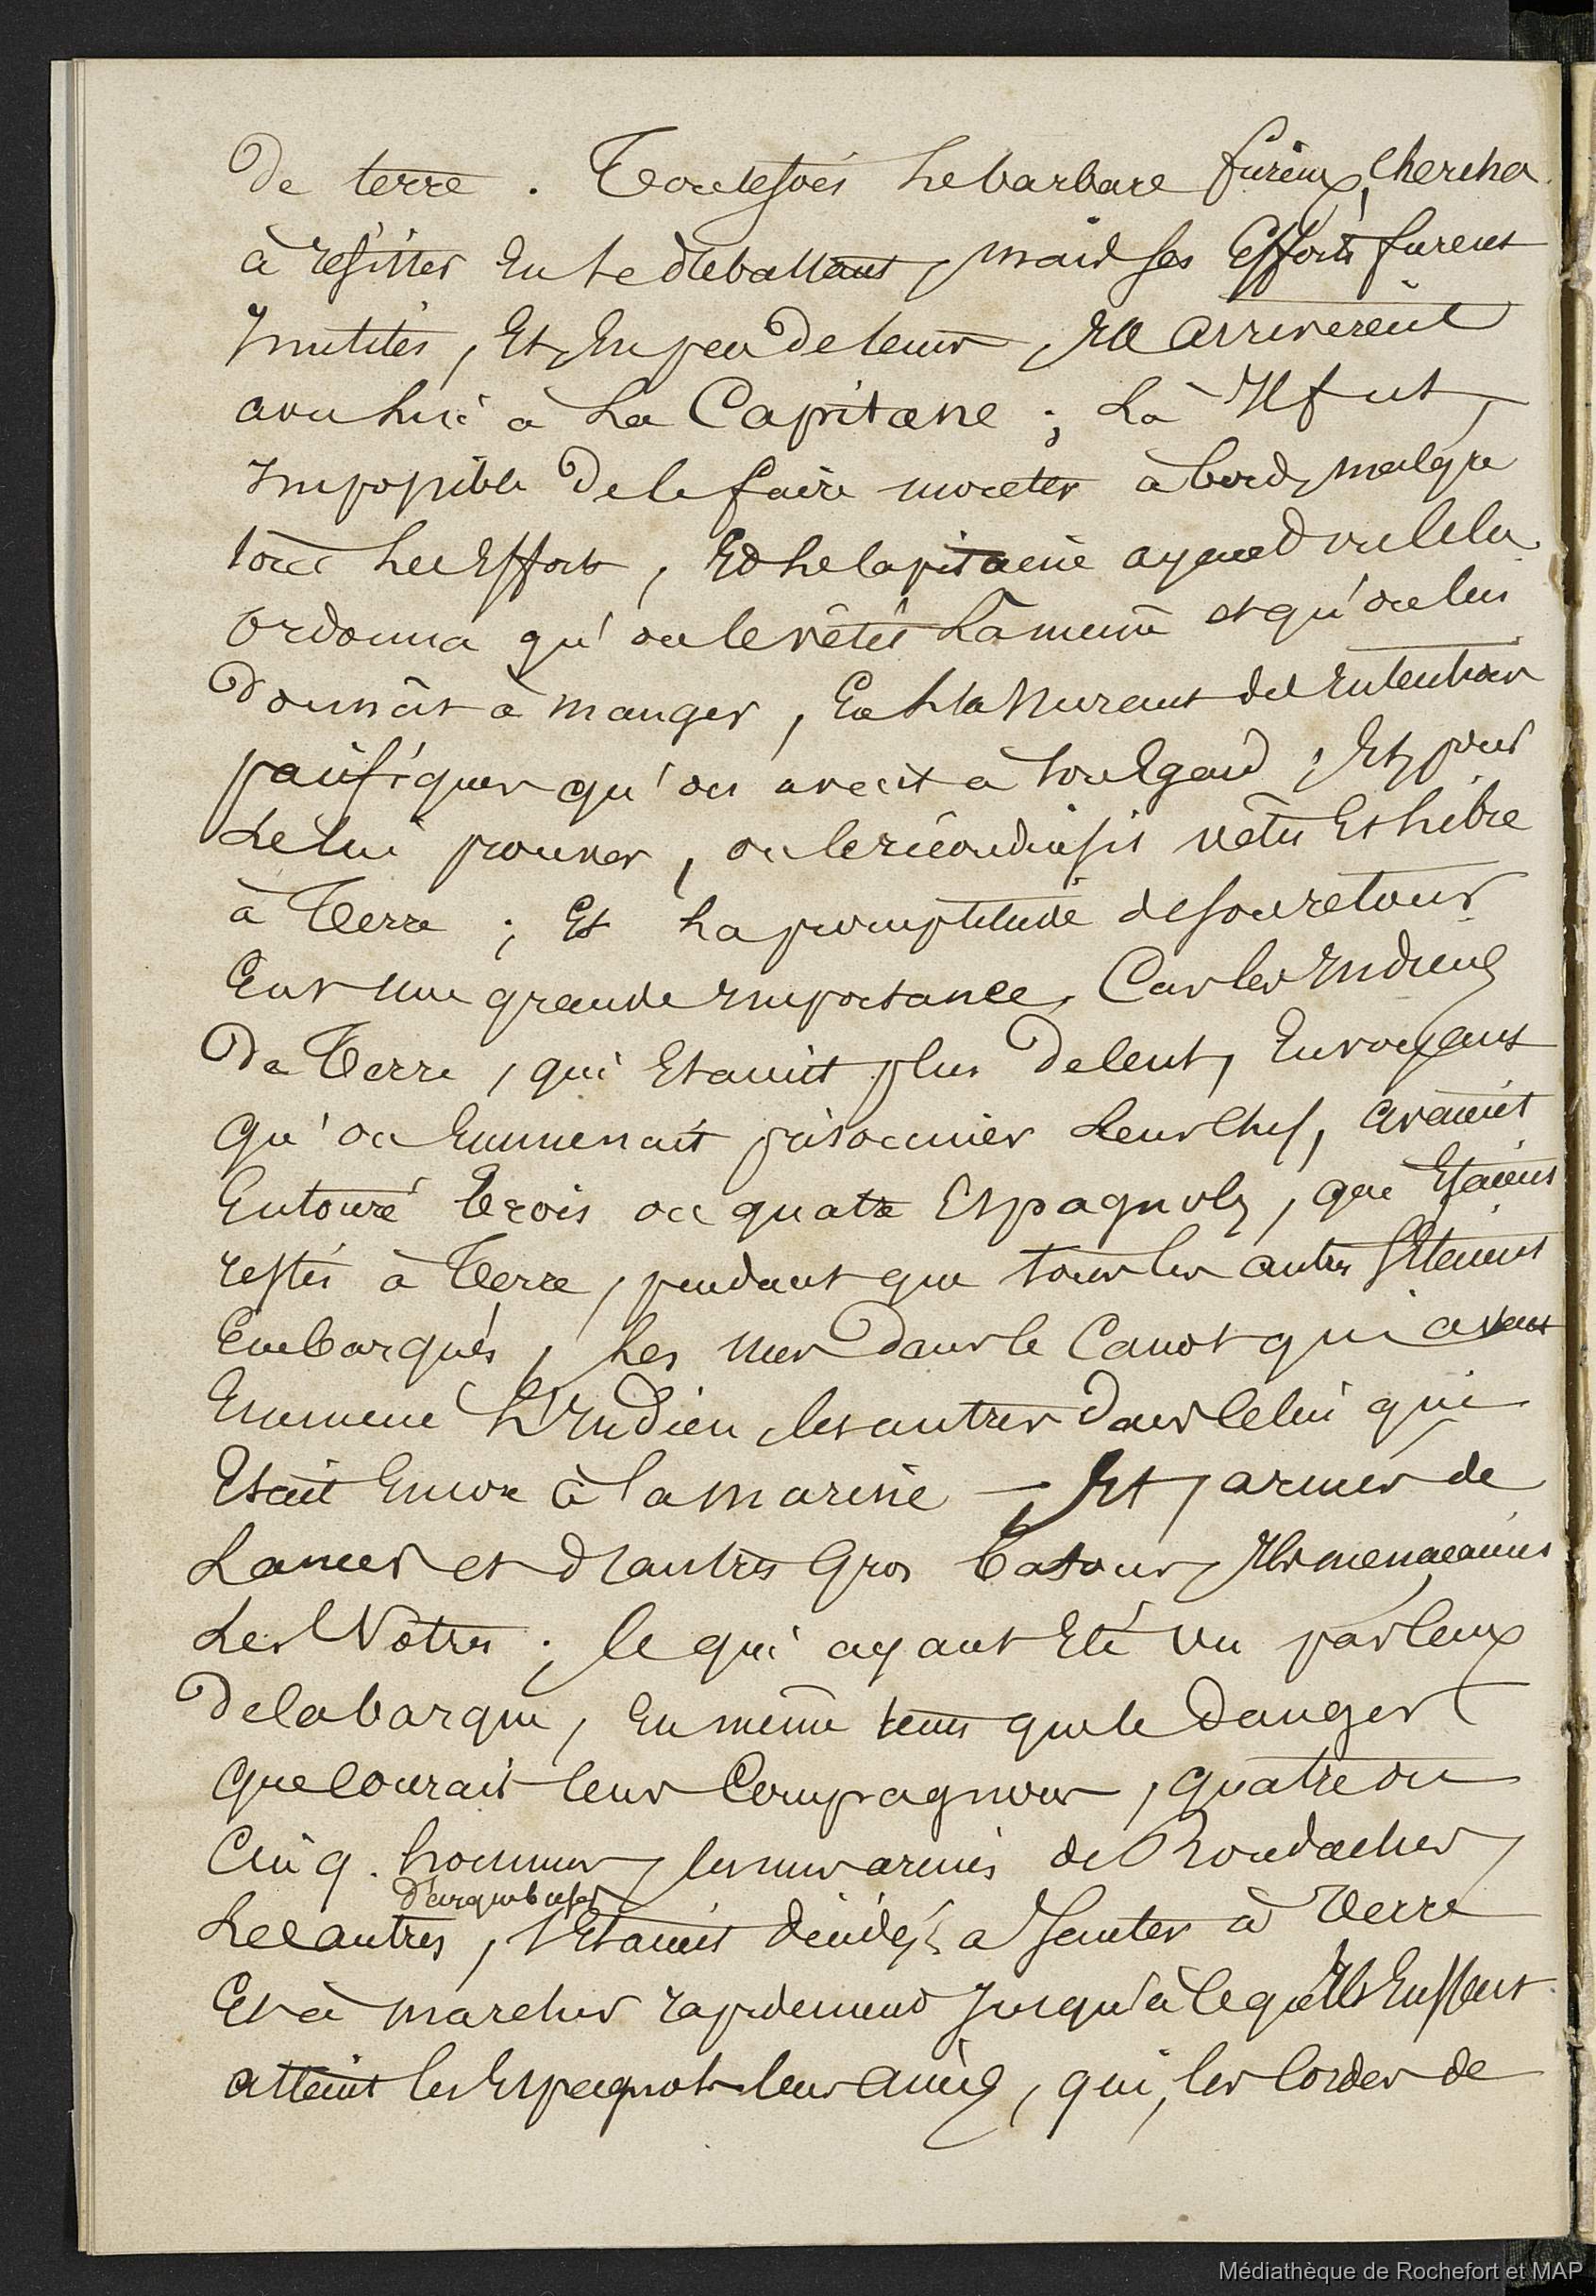 De terre. Toutesfois Le barbare furieux, chercha
à resister En se debattant, mais ses Efforts furent
Inutiles, Et, En peu De tems, Ils arriverent
avec Lui à La Capitane ; Là Il fut,
Impossible De le faire monter à bord, malgre
tous Les Efforts, Et Le Capitaine ayant vu Cela
Ordonna qu'on le vêtit Là même et qu'on lui
Donnât à manger, En L'assurant des Intentions
pacifiques qu'on avait à son Egard ; Et, pour
Le lui prouver, on le reconduisit vêtu Et Libre
à Terre ; Et La promptitude de son retour
Eut une grande Importance, Car les Indiens
De Terre, qui Etaient plus De Cent, En voyant
Qu'on Emmenait prisonnier Leur Chef, avaient
Entouré trois ou quatre Espagnols, qui Etaient
restés à Terre, pendant que tous les autres S'Etaient
Embarqués, Les uns Dans le Canot qui avait
Emmené L'Indien, les autres Dans Celui qui
Etait Encore à la marine — ; Et, armés de
Lances et d'autres Gros batons, Ils menacaient
Les Nôtres ; Ce qui ayant Eté vu par Ceux
De la barque, En même tems que le Danger
Que Courait leurs Compagnons, quatre ou
Cinq hommes, les uns armés de Rondaches,
Les autres, d'arquebuses S'Etaient décidés à Sauter à Terre
Et à marcher rapidement Jusqu'à Ce qu'Ils Eussent
atteint les Espagnols leurs amis, qui, les Cordes de
Médiathèque de Rochefort et MAP